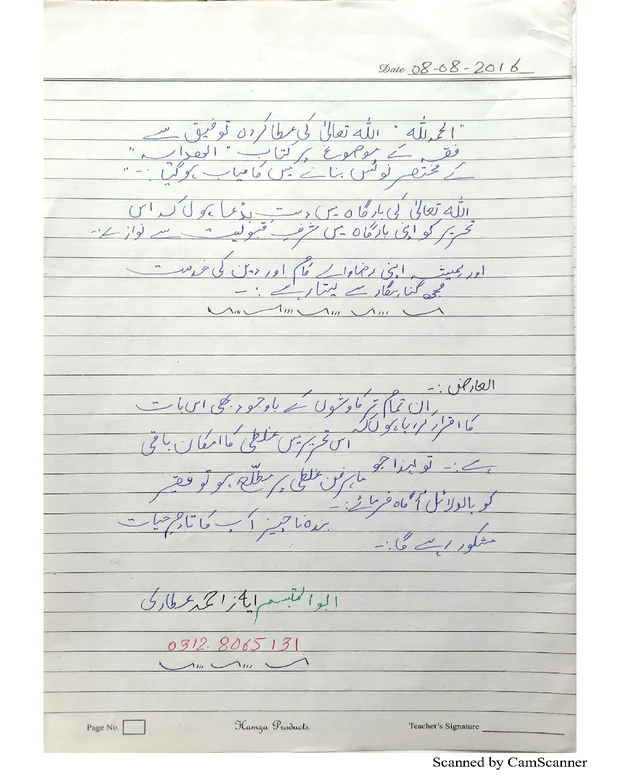 Date 08-08-2016
"الحمدللہ" اللہ تعالیٰ کی عطا کردہ توفیق سے
فقہ کے موضوع پر کتاب "الھدایہ"
کے مختصر نوٹس بنانے میں کامیاب ہوگیا :-"
اللہ تعالیٰ کی بارگاہ میں دست بدعا ہوں کہ اس
تحریر کو اپنی بارگاہ میں شرف قبولیت سے نوازے :-
اور ہمیشہ اپنی رضا والے کام اور دین کی خدمت
مجھ گناہگار سے لیتا رہے :-
العارض :-
ان تمام تر کاوشوں کے باوجود بھی اس بات
کا اقرار کر رہا ہوں کہ اس تحریر میں غلطی کا امکان باقی
ہے :- تو لہذا جو ماہر فن غلطی پر مطلع ہو تو فقیر
کو بالدلائل آگاہ فرمائے :-
بندہ ناچیز آپ کا تادم حیات
مشکور رہے گا :-
ابو المتبسم ایاز احمد عطاری
0312-8065131
Page No.
Hamza Products
Teacher's Signature
Scanned by CamScanner